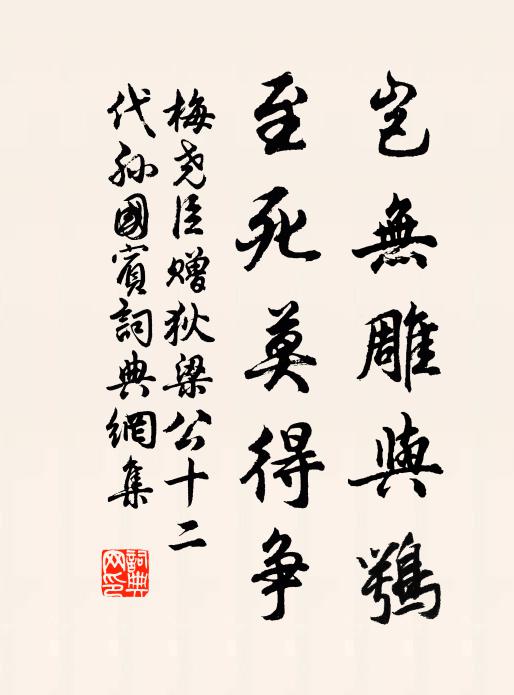 豈無雕與鶚
至死莫得爭
梅堯臣贈狄梁公十二
代孫國賓詞典網集
詞典網印